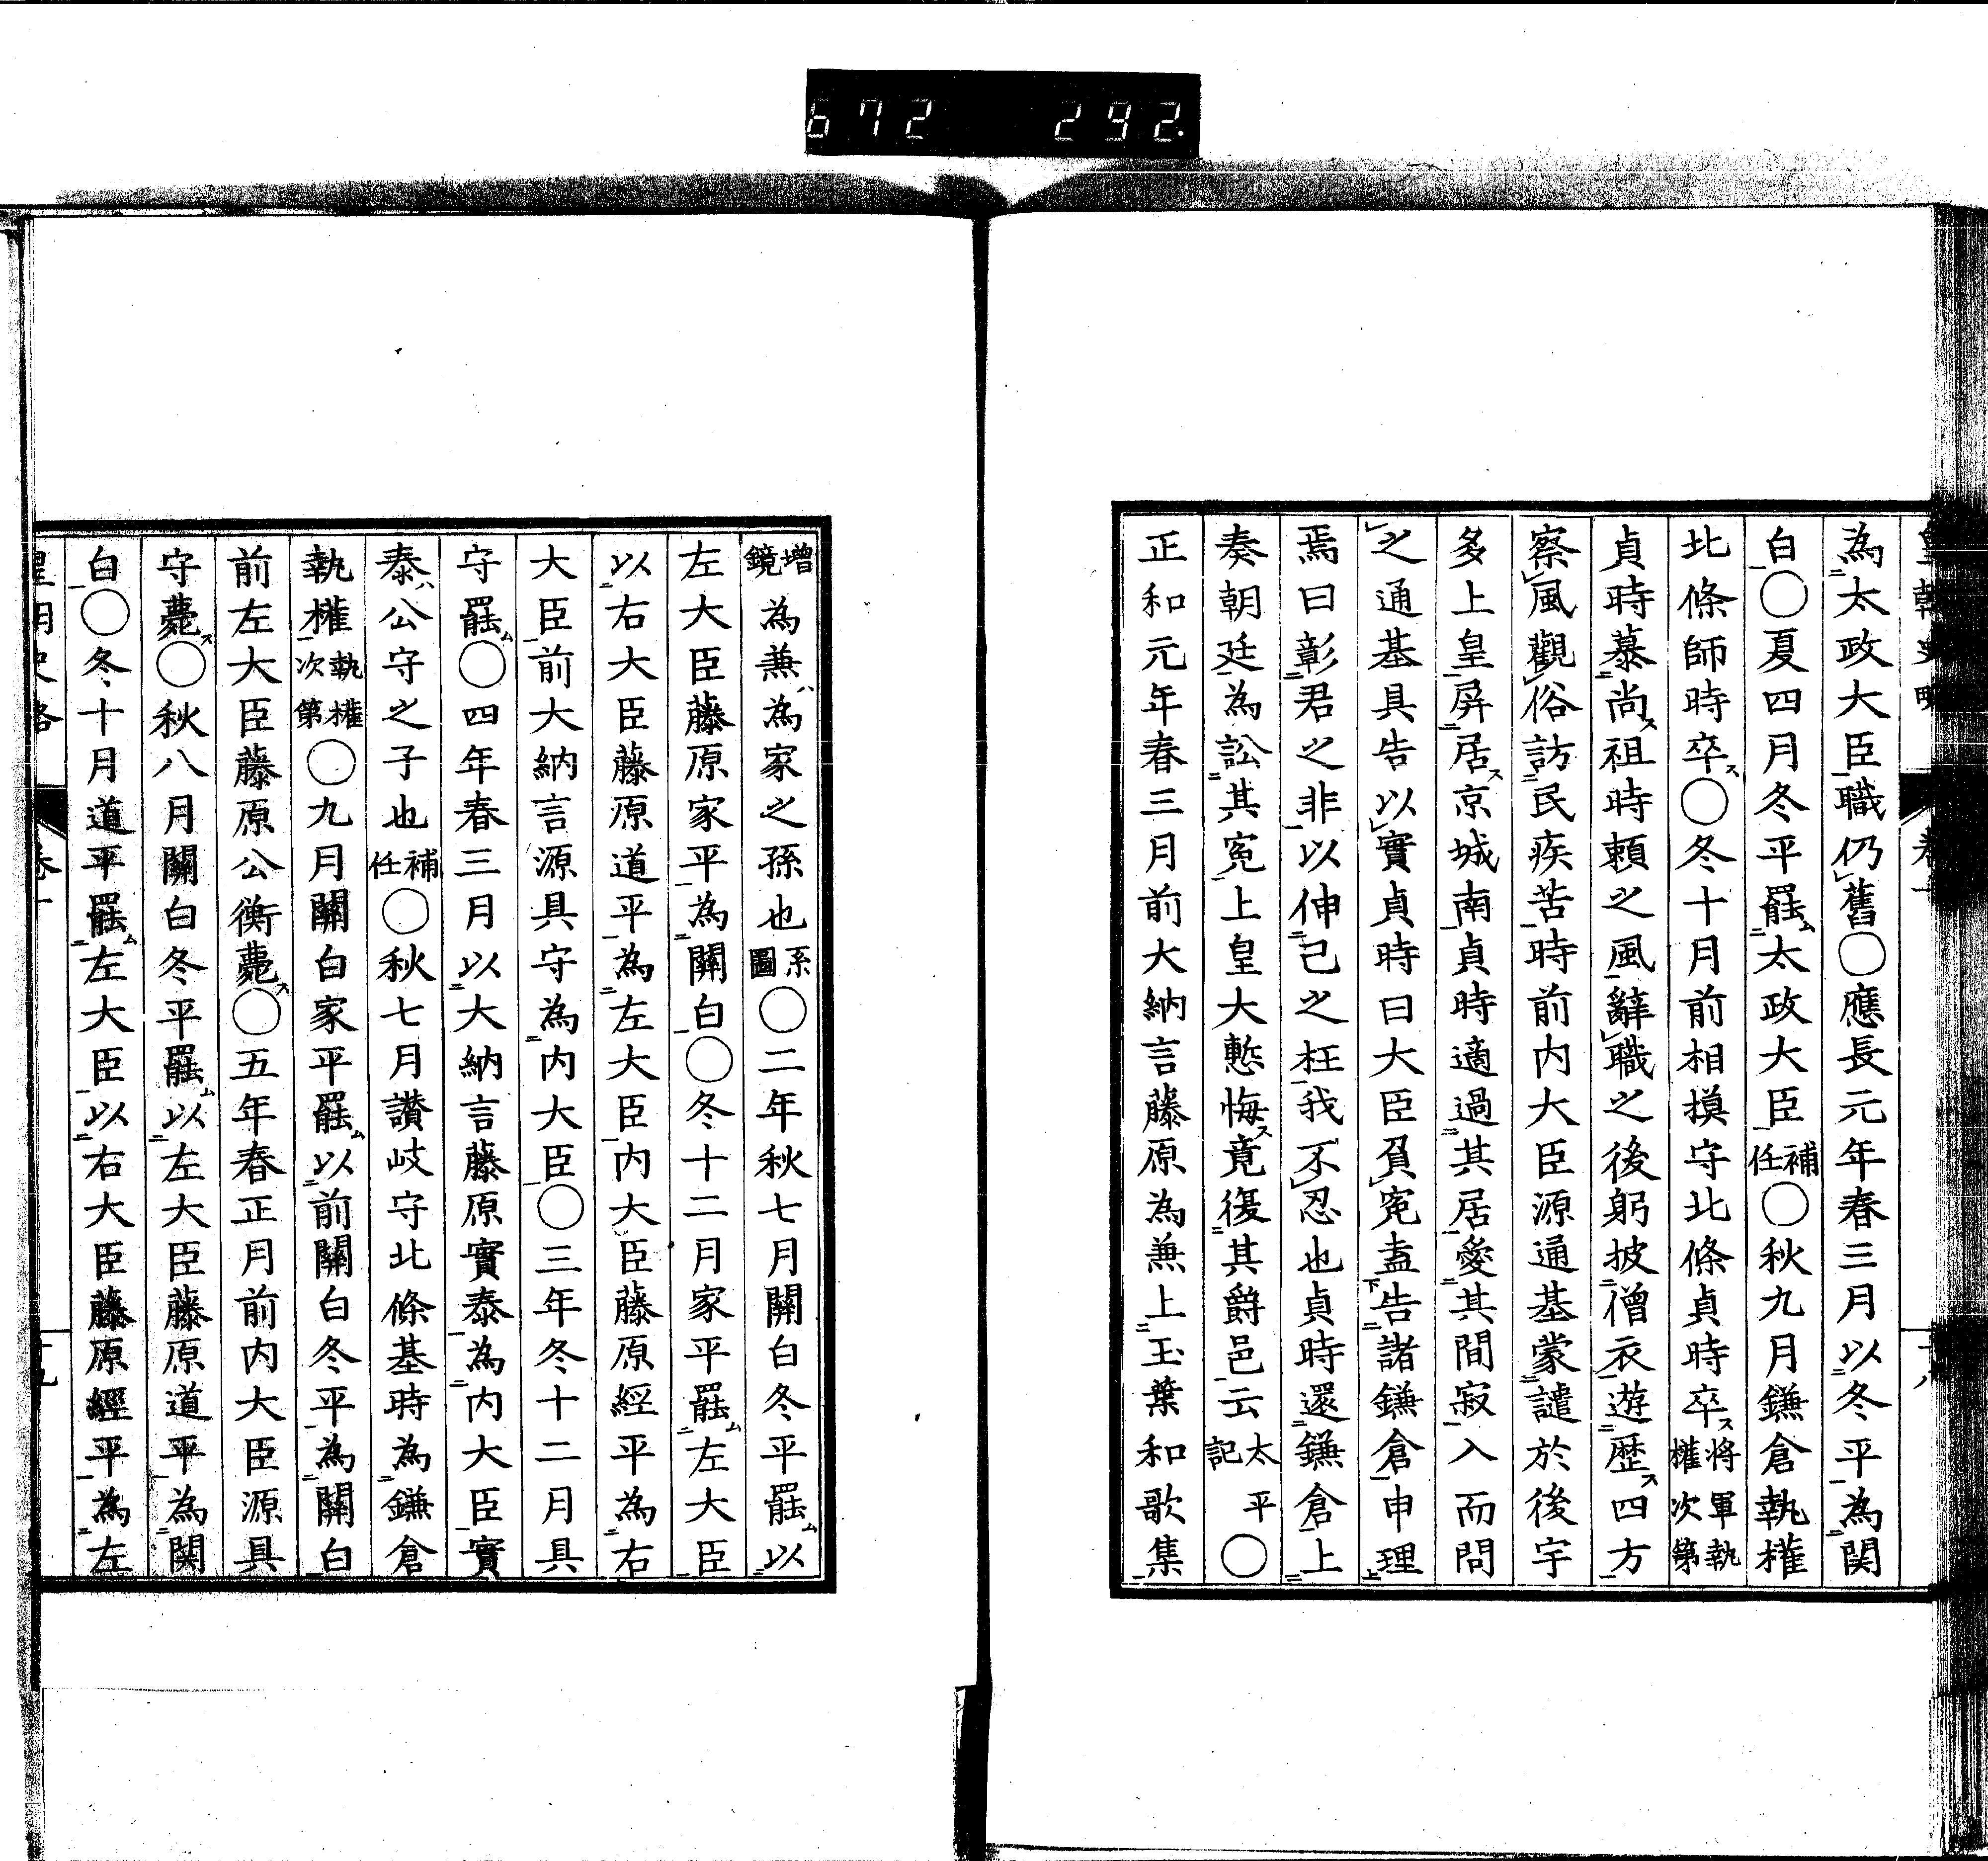 672 292.
為太政大臣職仍舊〇應長元年春三月以冬平為関
白〇夏四月冬平罷太政大臣補任〇秋九月鎌倉執權
北條師時卒〇冬十月前相摸守北條貞時卒將軍執權次第
貞時慕尚祖時頼之風辭職之後躬披僧衣遊歴四方
察風觀俗訪民疾苦時前内大臣源通基蒙譴於後宇
多上皇屏居京城南貞時適過其居愛其間寂入而問
之通基具告以實貞時曰大臣負寃盍告諸鎌倉申理
焉曰彰君之非以伸己之枉我不忍也貞時還鎌倉上
奏朝廷為訟其寃上皇大慙悔竟復其爵邑云太平記〇
正和元年春三月前大納言藤原為兼上玉葉和歌集
增鏡為兼為家之孫也系圖〇二年秋七月關白冬平罷以
左大臣藤原家平為關白〇冬十二月家平罷左大臣
以右大臣藤原道平為左大臣内大臣藤原經平為右
大臣前大納言源具守為内大臣〇三年冬十二月具
守罷〇四年春三月以大納言藤原實泰為内大臣實
泰公守之子也補任〇秋七月讃岐守北條基時為鎌倉
執權執權次第〇九月關白家平罷以前關白冬平為關白
前左大臣藤原公衡薨〇五年春正月前内大臣源具
守薨〇秋八月關白冬平罷以左大臣藤原道平為関
白〇冬十月道平罷左大臣以右大臣藤原經平為左